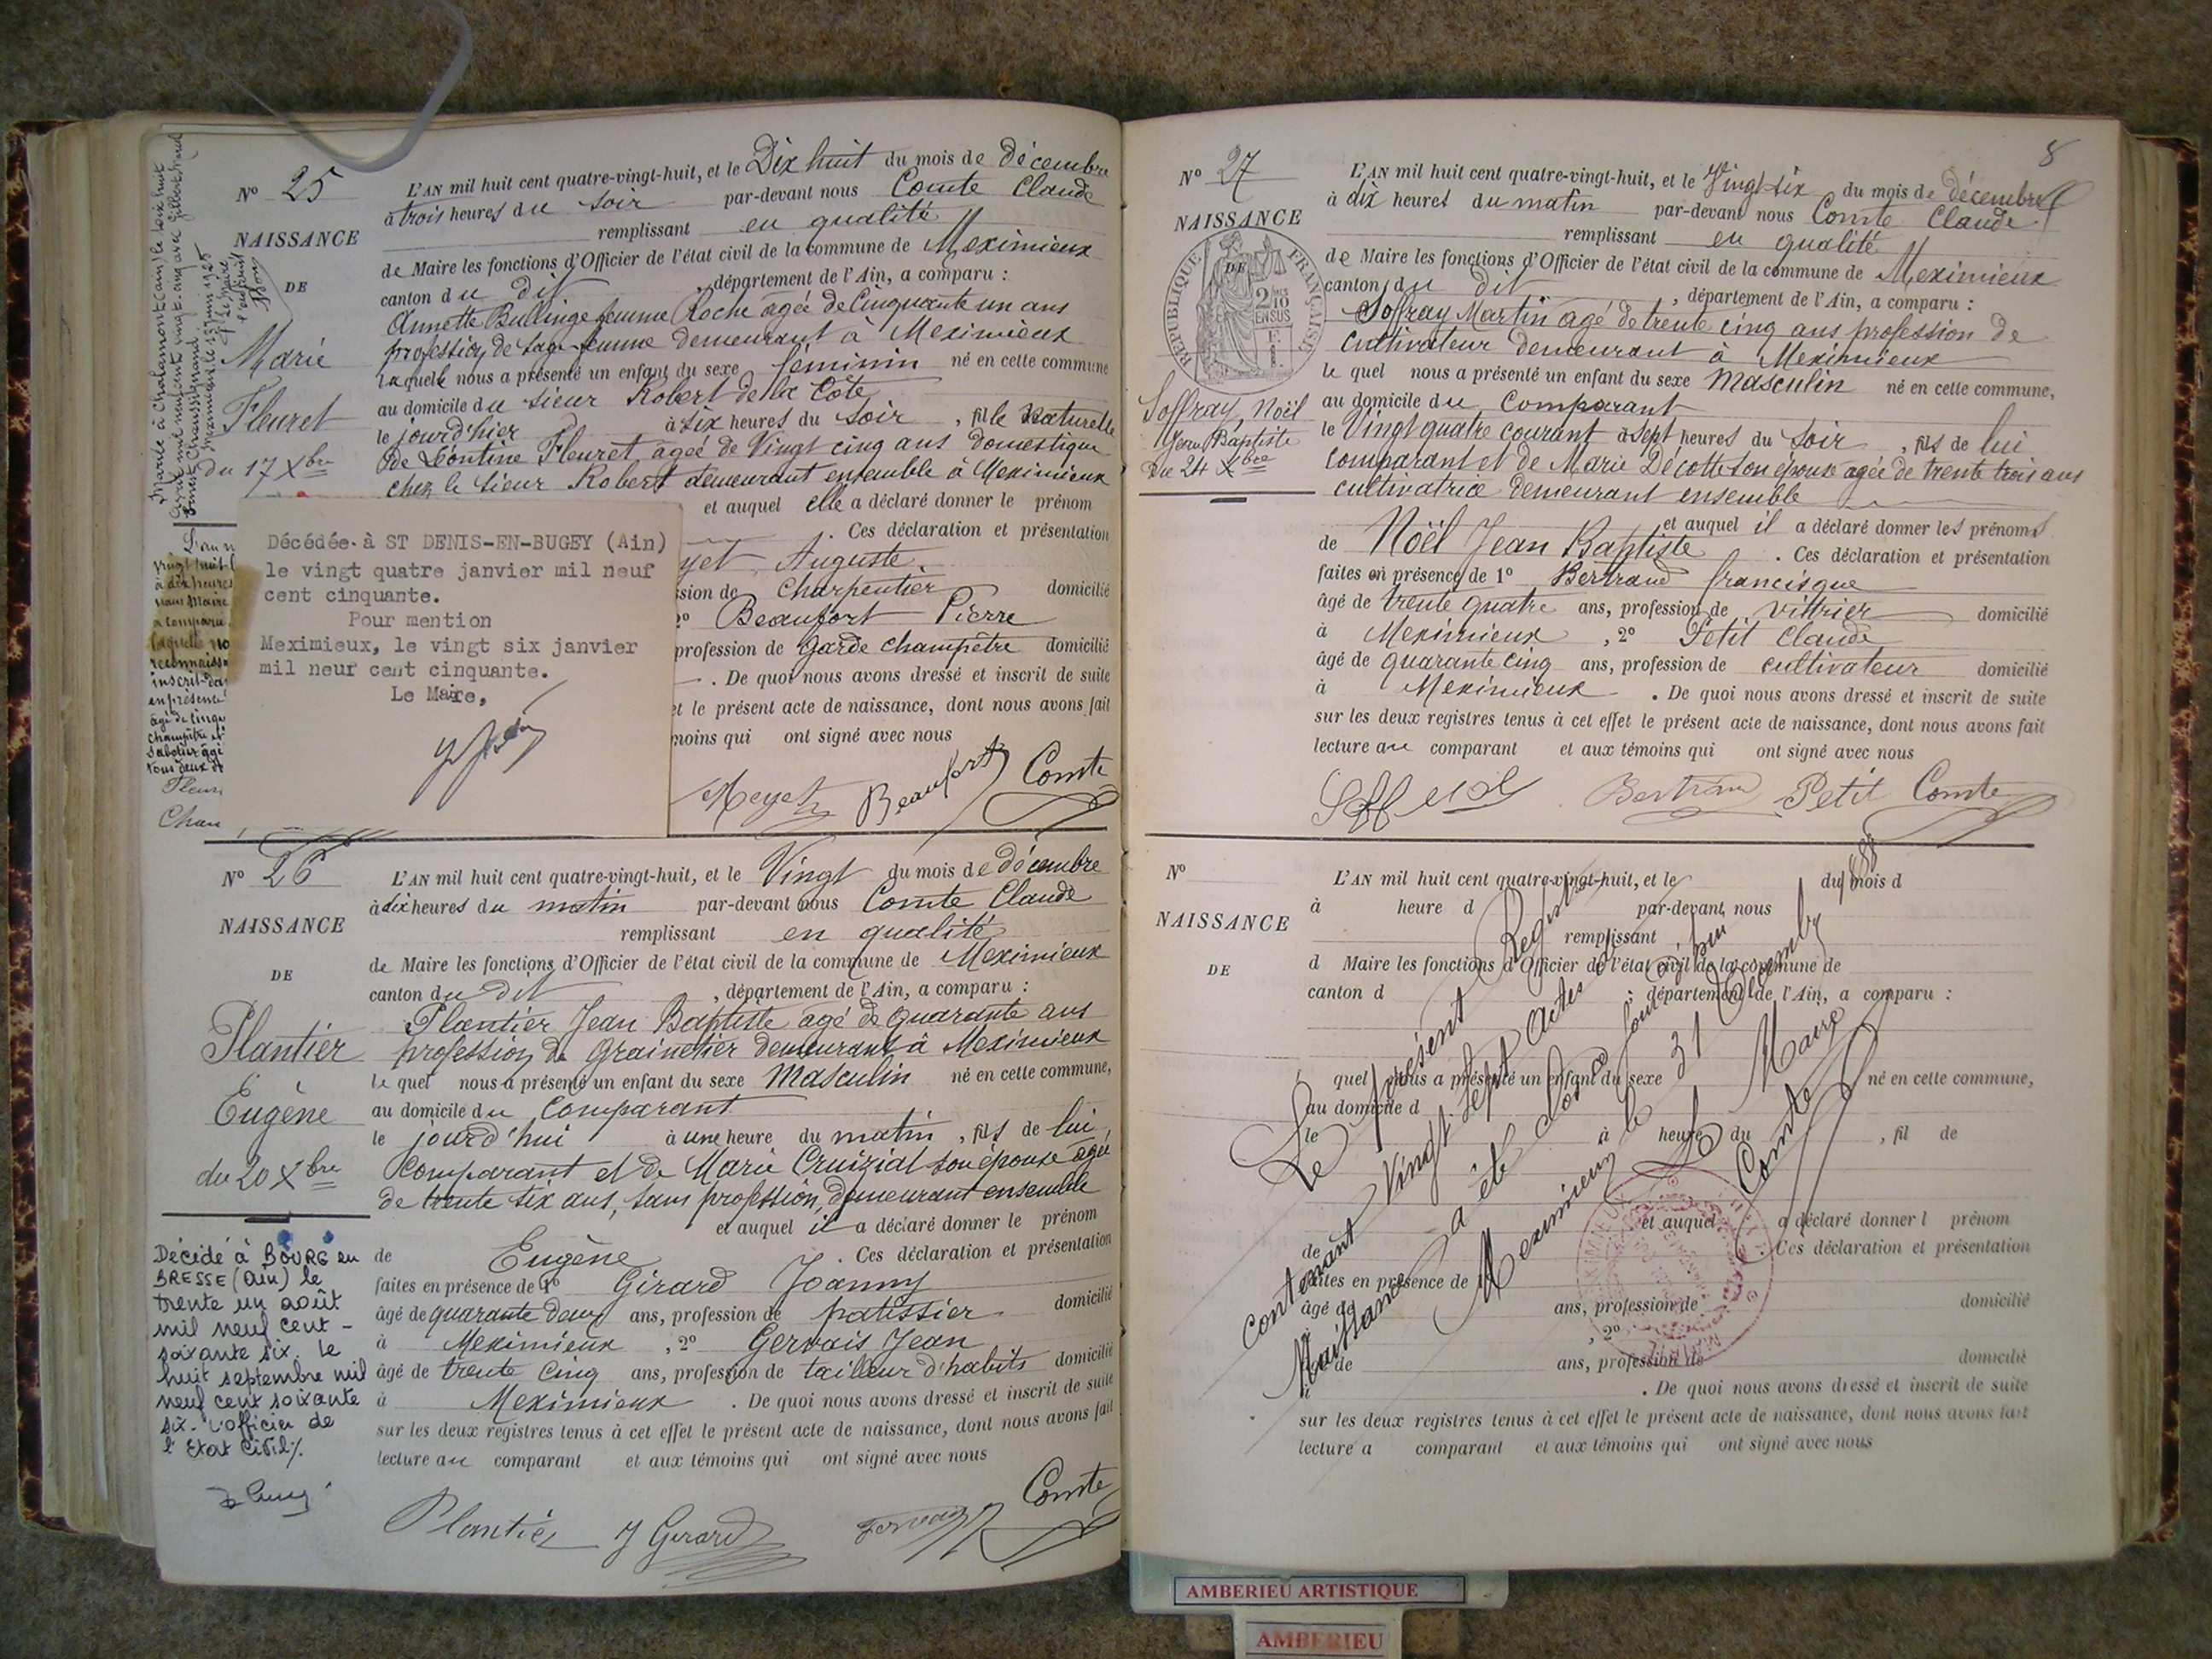 Nº 25
NAISSANCE
DE
Marie
Fleuret
du 17 Xbre
L'AN mil huit cent quatre-vingt-huit, et le Dix huit du mois de décembre
à trois heures du soir par-devant nous Comte Claude
remplissant en qualité
de Maire les fonctions d'Officier de l'état civil de la commune de Meximieux
canton du dit, département de l'Ain, a comparu :
Annette Bullinge femme Roche agée de Cinquante un ans
profession de sage-femme demeurant à Meximieux
laquelle nous a présenté un enfant du sexe féminin né en cette commune
au domicile du sieur Robert de la Côte
le jourd'hier à six heures du soir, fille naturelle
de Léontine Fleuret agée de Vingt cinq ans domestique
chez le sieur Robert demeurant ensemble à Meximieux
et auquel elle a déclaré donner le prénom
. Ces déclaration et présentation
yet Auguste
ssion de Charpentier domicilié
2º Beaufort Pierre
profession de garde champêtre domicilié
. De quoi nous avons dressé et inscrit de suite
et le présent acte de naissance, dont nous avons fait
moins qui ont signé avec nous
Meyet Beaufort Comte
Décédée à ST DENIS-EN-BUGEY (Ain)
le vingt quatre janvier mil neuf
cent cinquante.
Pour mention
Meximieux, le vingt six janvier
mil neuf cent cinquante.
Le Maire,
vingt huit
à dix heures
nous Maire
a comparu
laquelle no
reconnaiss
inscrit
en présence
agé de cinqu
champêtre et
Sabotier agé
tous deux
Fleur
Chan
Nº 26
NAISSANCE
DE
Plantier
Eugène
du 20 Xbre
Décédé à BOURG en
BRESSE (Ain) le
trente un août
mil neuf cent -
soixante six. le
huit septembre mil
neuf cent soixante
six. L'officier de
l'Etat Civil %.
L'AN mil huit cent quatre-vingt-huit, et le Vingt du mois de décembre
à dix heures du matin par-devant nous Comte Claude
remplissant en qualité
de Maire les fonctions d'Officier de l'état civil de la commune de Meximieux
canton du dit, département de l'Ain, a comparu :
Plantier Jean Baptiste agé de quarante ans
profession de grainetier demeurant à Meximieux
lequel nous a présenté un enfant du sexe Masculin né en cette commune,
au domicile du comparant
le jourd'hui à une heure du matin, fils de lui
comparant et de Marie Cruizial son épouse agée
de trente six ans, sans profession, demeurant ensemble
et auquel il a déclaré donner le prénom
de Eugène. Ces déclaration et présentation
faites en présence de 1º Girard Joanny
âgé de quarante deux ans, profession de patissier domicilié
à Meximieux, 2º Gervais Jean
âgé de trente cinq ans, profession de tailleur d'habits domicilié
à Meximieux. De quoi nous avons dressé et inscrit de suite
sur les deux registres tenus à cet effet le présent acte de naissance, dont nous avons fait
lecture au comparant et aux témoins qui ont signé avec nous
Plantier J Girard Gervais Comte
8
Nº 27
NAISSANCE
DE
RÉPUBLIQUE FRANÇAISE
Soffray Noël
Jean Baptiste
Du 24 Xbre
L'AN mil huit cent quatre-vingt-huit, et le Vingt-six du mois de décembre
à dix heures du matin par-devant nous Comte Claude
remplissant en qualité
de Maire les fonctions d'Officier de l'état civil de la commune de Meximieux
canton du dit, département de l'Ain, a comparu :
Soffray Martin agé de trente cinq ans profession de
cultivateur demeurant à Meximieux
lequel nous a présenté un enfant du sexe Masculin né en cette commune,
au domicile du comparant
le Vingt quatre courant à sept heures du soir, fils de lui
comparant et de Marie Décotte son épouse agée de trente trois ans
cultivatrice demeurant ensemble
et auquel il a déclaré donner les prénoms
de Noël Jean Baptiste. Ces déclaration et présentation
faites en présence de 1º Bertrand francisque
âgé de trente quatre ans, profession de vittrier domicilié
à Meximieux, 2º Petit Claude
âgé de quarante cinq ans, profession de cultivateur domicilié
à Meximieux. De quoi nous avons dressé et inscrit de suite
sur les deux registres tenus à cet effet le présent acte de naissance, dont nous avons fait
lecture au comparant et aux témoins qui ont signé avec nous
Bertrand Petit Comte
Nº
NAISSANCE
DE
L'AN mil huit cent quatre-vingt-huit, et le du mois d
à heure d par-devant nous
remplissant
d Maire les fonctions d'Officier de l'état civil de la commune de
canton d : département de l'Ain, a comparu :
quel nous a présenté un enfant du sexe né en cette commune,
au domicile d
le à heure du, fil de
et auquel a déclaré donner l prénom
de. Ces déclaration et présentation
faites en présence de 1º
âgé de ans, profession de domicilié
, 2º
âgé de ans, profession de domicilié
. De quoi nous avons dressé et inscrit de suite
sur les deux registres tenus à cet effet le présent acte de naissance, dont nous avons fait
lecture a comparant et aux témoins qui ont signé avec nous
Le présent Registre
contenant Vingt Sept Actes de
Naissance a été clos ce jourd'hui
Meximieux le 31 Décembre 1888
Le Maire
Comte
AMBERIEU ARTISTIQUE
AMBERIEU